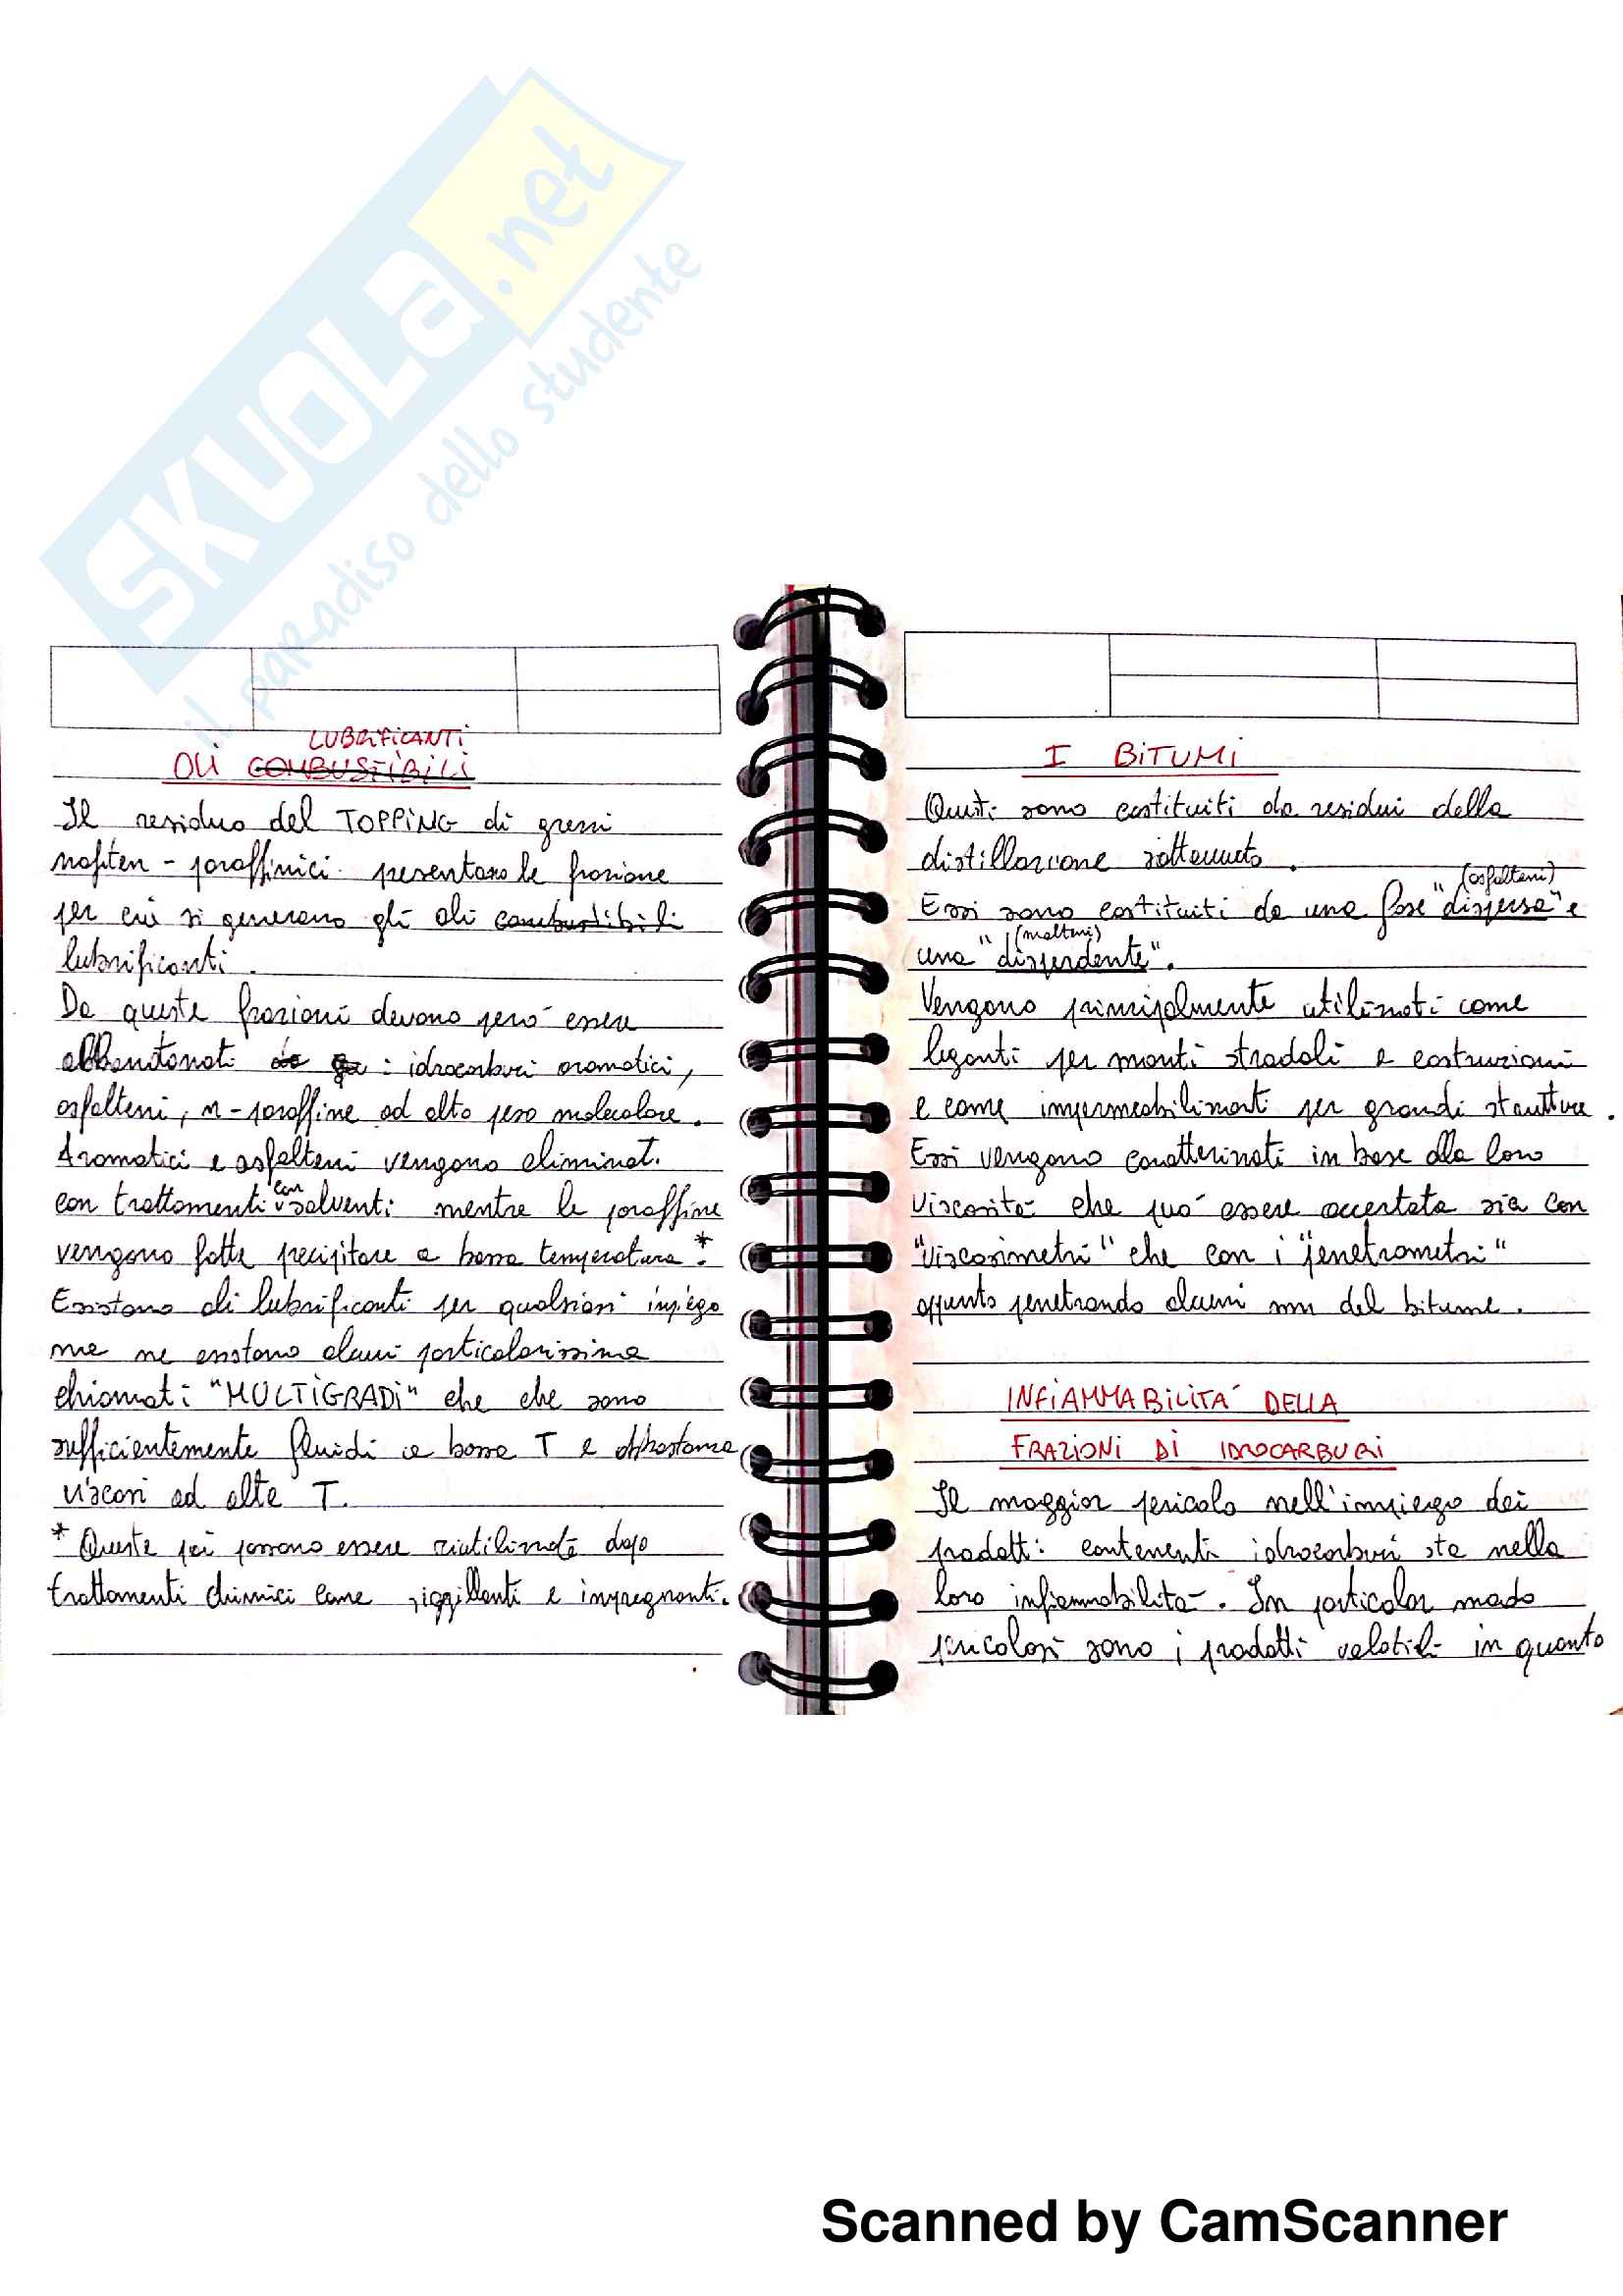 SKUOLA.net
il paradiso dello studente
LUBRIFICANTI
OLI COMBUSTIBILI
Il residuo del TOPPING di grezzi
naften-paraffinici presentano le frazione
per cui si generano gli oli combustibili
lubrificanti.
Da queste frazioni devono però essere
allontanati da : idrocarburi aromatici,
asfalteni, n-paraffine ad alto peso molecolare.
Aromatici e asfalteni vengono eliminati
con trattamenti con solventi mentre le paraffine
vengono fatte precipitare a bassa temperatura.*
Esistono oli lubrificanti per qualsiasi impiego
ma ne esistono alcuni particolarissima
chiamati "MULTIGRADI" che che sono
sufficientemente fluidi a bassa T e abbastanza
viscosi ad alte T.
* Queste poi possono essere riutilizzate dopo
trattamenti chimici come sigillanti e impregnanti.
I BITUMI
Questi sono costituiti da residui della
distillazione sottovuoto.
(asfalteni)
Essi sono costituiti da una fase "dispersa" e
(malteni)
una "disperdente".
Vengono principalmente utilizzati come
leganti per manti stradali e costruzioni
e come impermeabilizzanti per grandi strutture.
Essi vengono caratterizzati in base alla loro
viscosità che può essere accertata sia con
"viscosimetri" che con i "penetrometri"
appunto penetrando alcuni mm del bitume.
INFIAMMABILITÀ DELLA
FRAZIONI DI IDROCARBURI
Il maggior pericolo nell'impiego dei
prodotti contenenti idrocarburi sta nella
loro infiammabilità. In particolar modo
pericolosi sono i prodotti volatili in quanto
Scanned by CamScanner